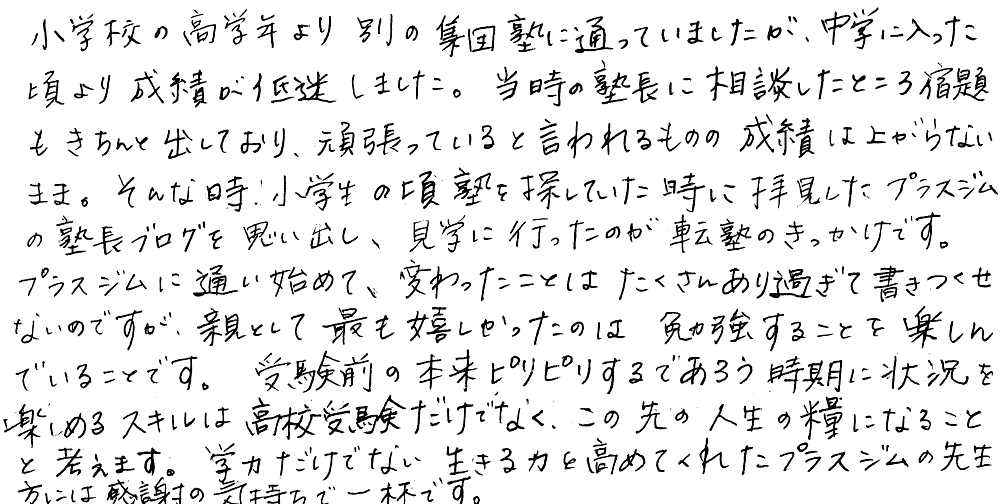 小学校の高学年より 別の集団塾に通っていましたが、中学に入った
頃より成績が低迷しました。当時の塾長に相談したところ宿題
もきちんと出しており、頑張っていると言われるものの 成績は上がらない
まま。そんな時、小学生の頃塾を探していた時に拝見したプラスジム
の塾長ブログを思い出し、見学に行ったのが転塾のきっかけです。
プラスジムに通い始めて、変わったことはたくさんあり過ぎて書きつくせ
ないのですが、親として最も嬉しかったのは 勉強することを楽しん
でいることです。 受験前の本来ピリピリするであろう時期に状況を
楽しめるスキルは高校受験だけでなく、この先の人生の糧になること
と考えます。学力だけでない生きる力を高めてくれたプラスジムの先生
方には感謝の気持ちで一杯です。